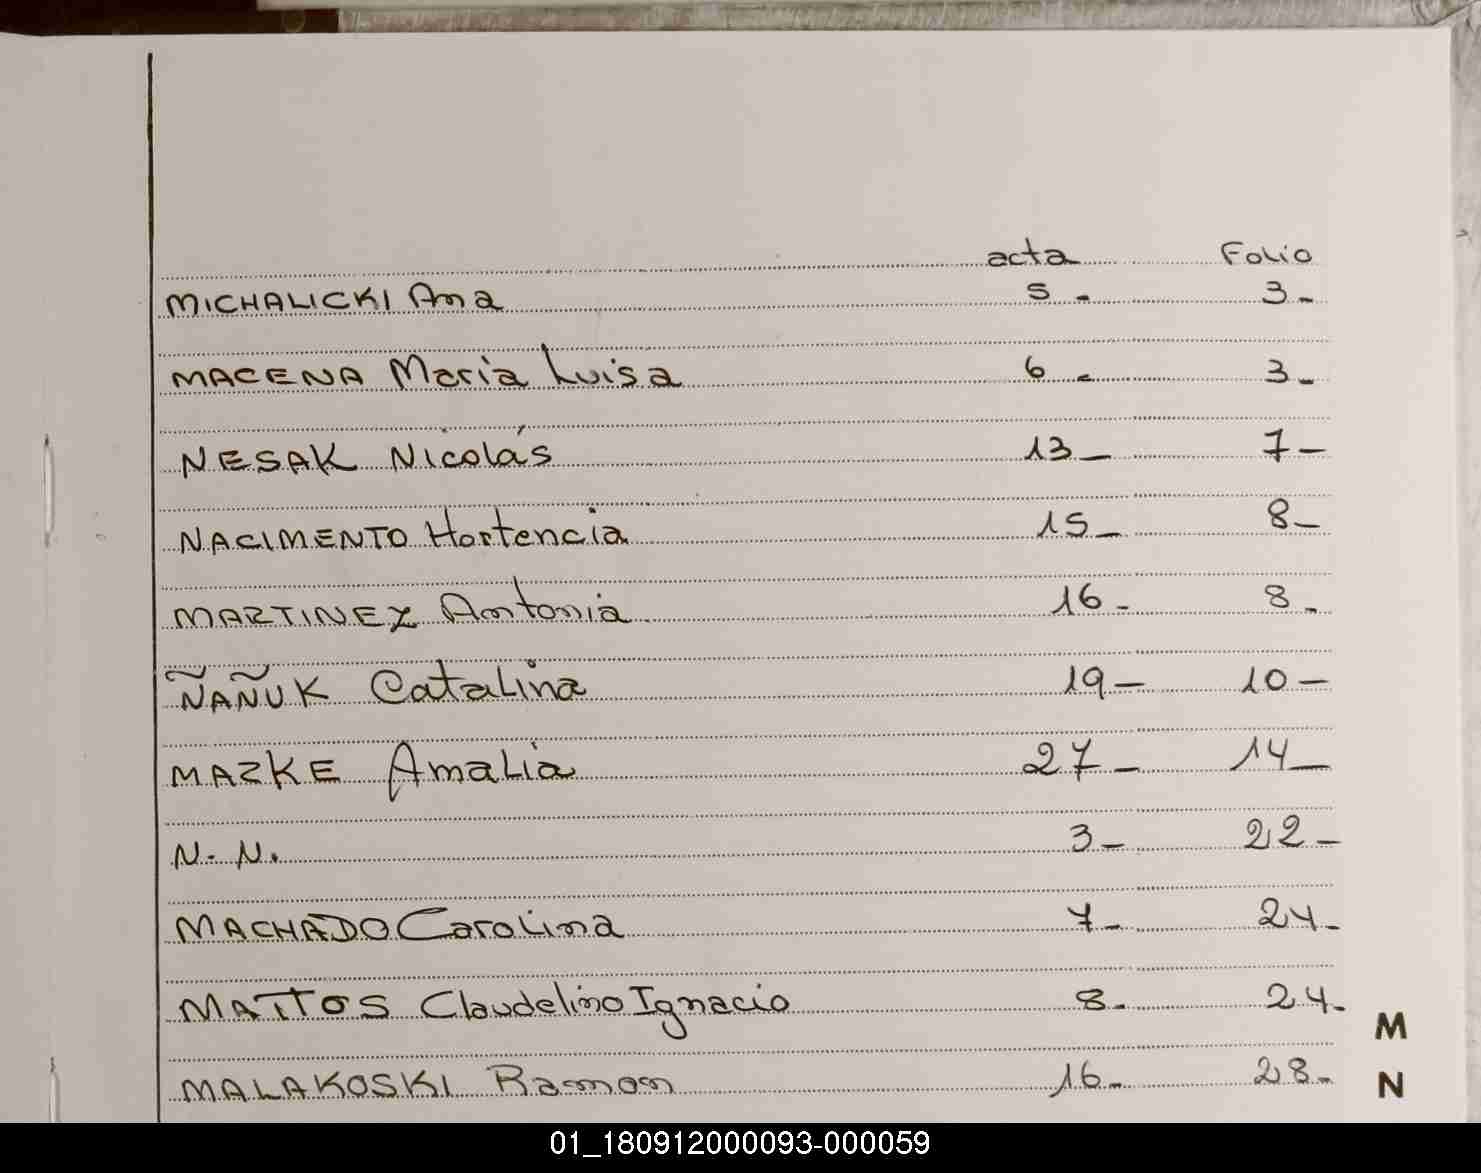 acta Folio
MICHALICKI Ana 5 - 3 -
MACENA Maria Luisa 6 - 3 -
NESAK Nicolás 13 - 7 -
NACIMENTO Hortencia 15 - 8 -
MARTINEZ Antonia 16 - 8 -
ÑAÑUK Catalina 19 - 10 -
MAZKE Amalia 27 - 14 -
N. N. 3 - 22 -
MACHADO Carolina 7 - 24 -
MATTOS Claudelino Ignacio 8 - 24 -
M
MALAKOSKI Ramon 16 - 28 -
N
01_180912000093-000059